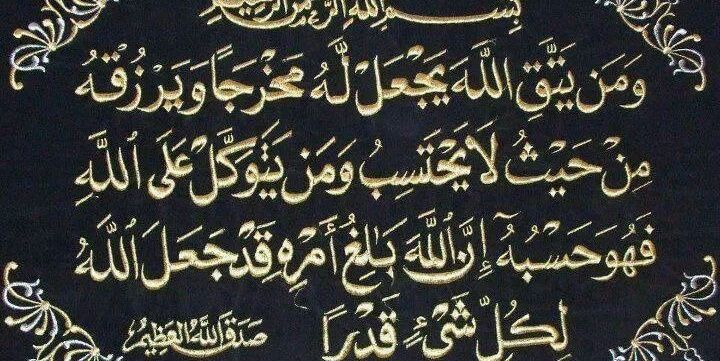 بسم الله الرحمن الرحيم
وَمَن يَتَّقِ اللَّهَ يَجْعَل لَّهُ مَخْرَجًا وَيَرْزُقْهُ
مِنْ حَيْثُ لَا يَحْتَسِبُ وَمَن يَتَوَكَّلْ عَلَى اللَّهِ
فَهُوَ حَسْبُهُ إِنَّ اللَّهَ بَالِغُ أَمْرِهِ قَدْ جَعَلَ اللَّهُ
لِكُلِّ شَيْءٍ قَدْرًا
صَدَقَ اللَّهُ الْعَظِيمُ